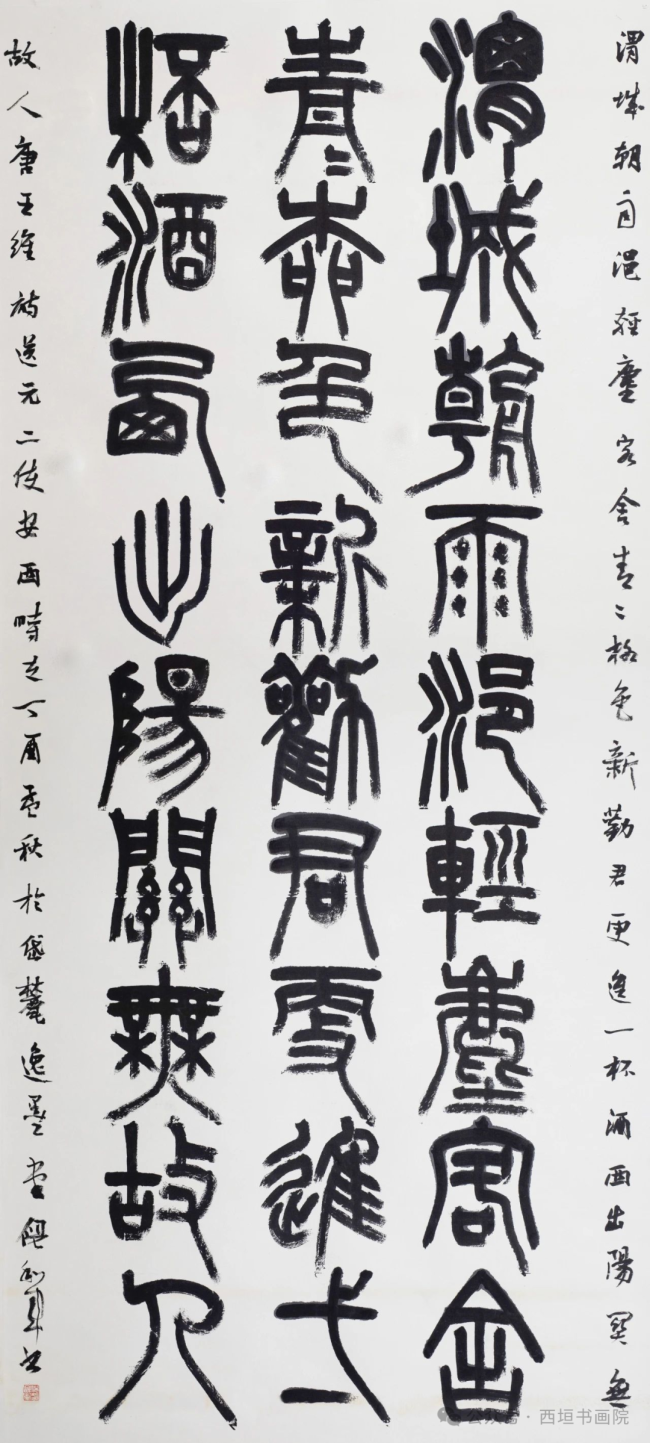 渭城朝雨浥輕塵客舍青〻柳色新勸君更進一杯酒西出陽関無
渭城朝雨浥輕塵客舍
青〻柳色新勸君更進弌
桮酒西出陽關無故人
故人唐王維詩送元二使安西時在丁酉孟秋於岱麓逸墨堂
公众号·西垣书画院